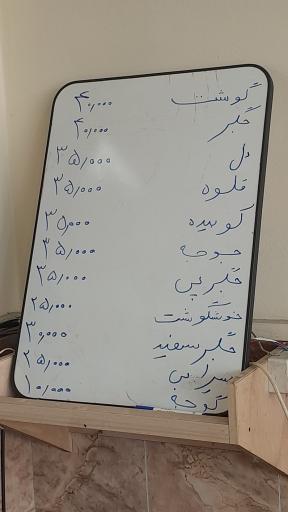 گوشت ۴۰٫۰۰۰
جگر ۴۰٫۰۰۰
دل ۳۵٫۰۰۰
قلوه ۳۵٫۰۰۰
کوبیده ۳۵٫۰۰۰
جوجه ۳۵٫۰۰۰
۳۵٫۰۰۰
خوشگوشت ۲۵٫۰۰۰
جگر سفید ۳۰٫۰۰۰
سیرابی ۲۵٫۰۰۰
گوجه ۱۰٫۰۰۰